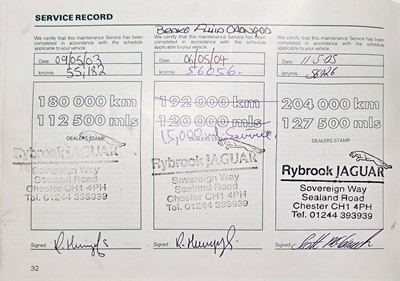 SERVICE RECORD
We certify that this maintenance Service has been
completed in accordance with the schedule
applicable to your vehicle.
Date 09/05/03
km/mls 55,182
180 000 km
112 500 mls
DEALERS STAMP
Rybrook JAGUAR
Sovereign Way
Sealand Road
Chester CH1 4PH
Tel. 01244 393939
Signed
32
BRAKE FLUID CHANGED
We certify that this maintenance Service has been
completed in accordance with the schedule
applicable to your vehicle.
Date 06/05/04
km/mls 56056.
192 000 km
120 000 mls
15,000 ml Service
DEALERS STAMP
Rybrook JAGUAR
Sovereign Way
Sealand Road
Chester CH1 4PH
Tel. 01244 393939
Signed
We certify that this maintenance Service has been
completed in accordance with the schedule
applicable to your vehicle.
Date 11.5.05
km/mls
204 000 km
127 500 mls
DEALERS STAMP
Rybrook JAGUAR
Sovereign Way
Sealand Road
Chester CH1 4PH
Tel. 01244 393939
Signed